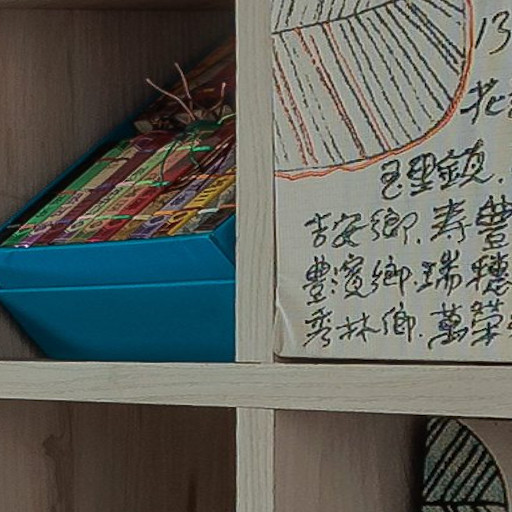 13
花
玉里鎮.
吉安鄉.壽豐
豐濱鄉.瑞穗
秀林鄉.萬榮